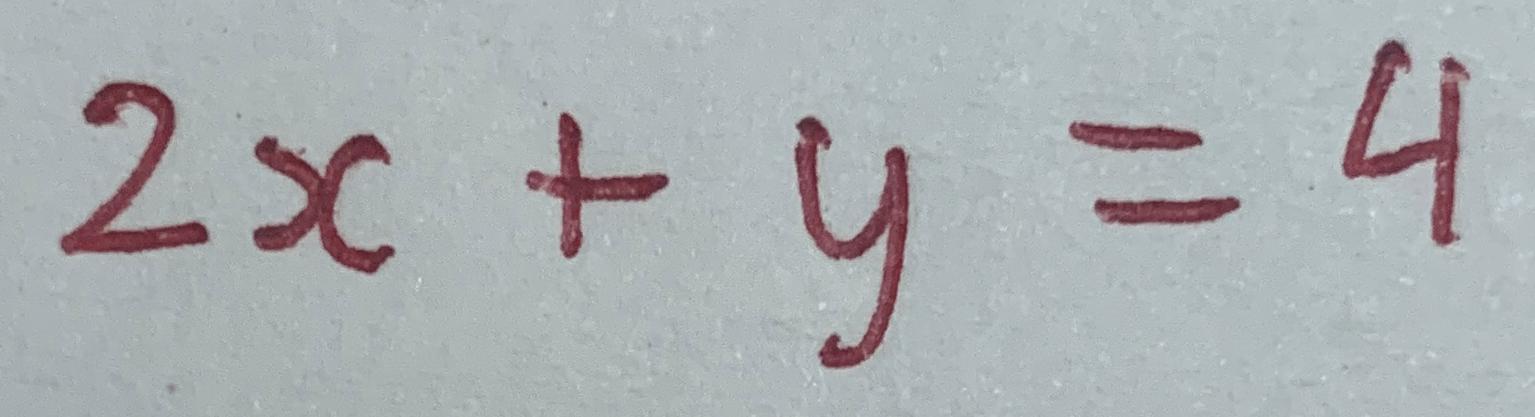 2x + y = 4